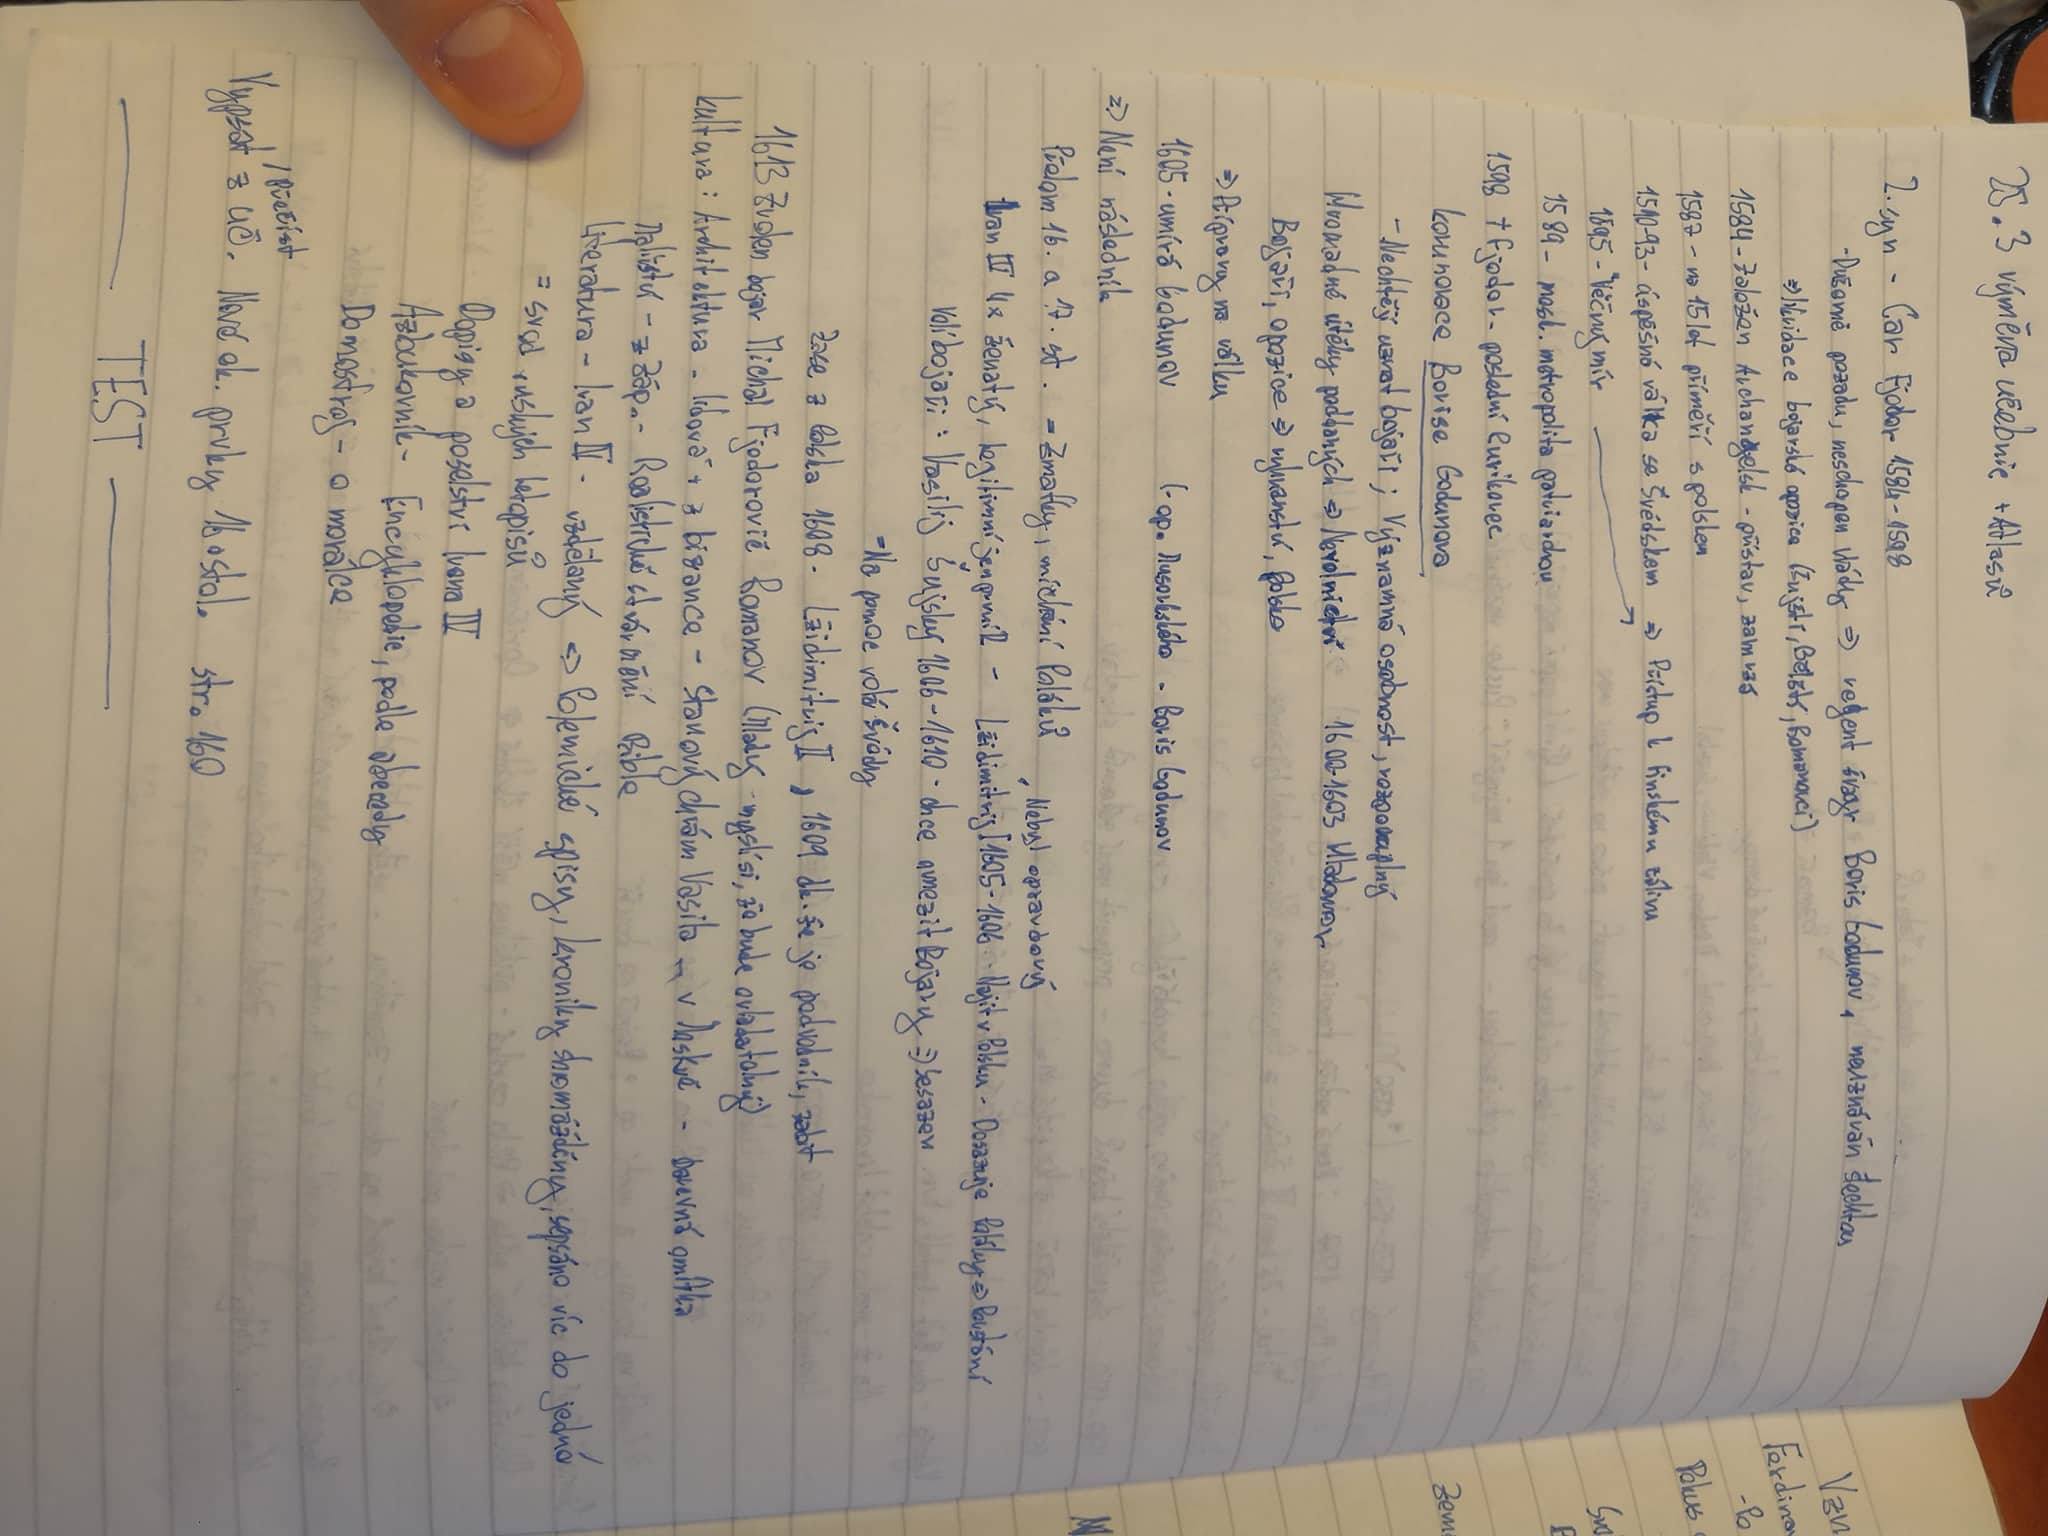 25.3 výměna učebnic + Atlasů
2. syn - Car Fjodor 1584-1598
-Duševně pozadu, neschopen vlády => regent švagr Boris Godunov, neuznáván šlechtou
=> likvidace bojarské opozice (Šujští, Bělští, Romanovci)
1584 - Založen Archangelsk - přístav, zamrzá
1587 - na 15 let příměří s polskem
1590-93 - úspěšná válka se Švédskem => Přístup k finskému zálivu
1595 - "Věčný mír
1589 - mosk. metropolita patriarchou
1598 † Fjodor - poslední Rurikovec
korunovace Borise Godunova
- Nechtějí uznat bojaři ; Významná osobnost, rozporuplný
Hromadné útěky poddaných => Nevolnictví 1600-1603 Hladomor
Bojaři, opozice => vyhnanství, Polsko
=> Přípravy na válku
1605 - umírá Godunov (- op. Musorkského - Boris Godunov
=> Není následník
Přelom 16. a 17. st. = Zmatky, míchání Poláků
Nebyl opravdový
Ivan IV 4x ženatý, legitimní jen první 2 - Lžidimitrij I 1605-1606 - Najit v Polsku - Dosazuje Poláky => Povstání
Volí bojaři : Vasilij Šujský 1606-1610 - chce omezit Bojary => Sesazen
- Na pomoc volá Švédy
Zase z Polska 1608 - Lžidimitrij II, 1609 dk. že je podvodník, zabit
1613 Zvolen bojar Michal Fjodorovič Romanov (Mladý - myslí si, že bude ovladatelný)
kultura : Architektura - lidová + z bizance - Stanový chrám Vasila v Moskvě - barevná omítka
Malířství - z záp. - Realistické ztvárnění Bible
Literatura - Ivan IV - vzdělaný => Polemické spisy, kroniky shromážděny, sepsáno víc do jedné
= svod ruských letopisů
Dopisy a poselství Ivana IV
Azbukovník - Encyklopedie, podle abecedy
Domostroj - o morálce
/ Přečíst
Vypsat z uč. Nové ek. prvky 16. stol. str. 160
TEST
Vzn
Ferdina
- Po
Pokus
Zem